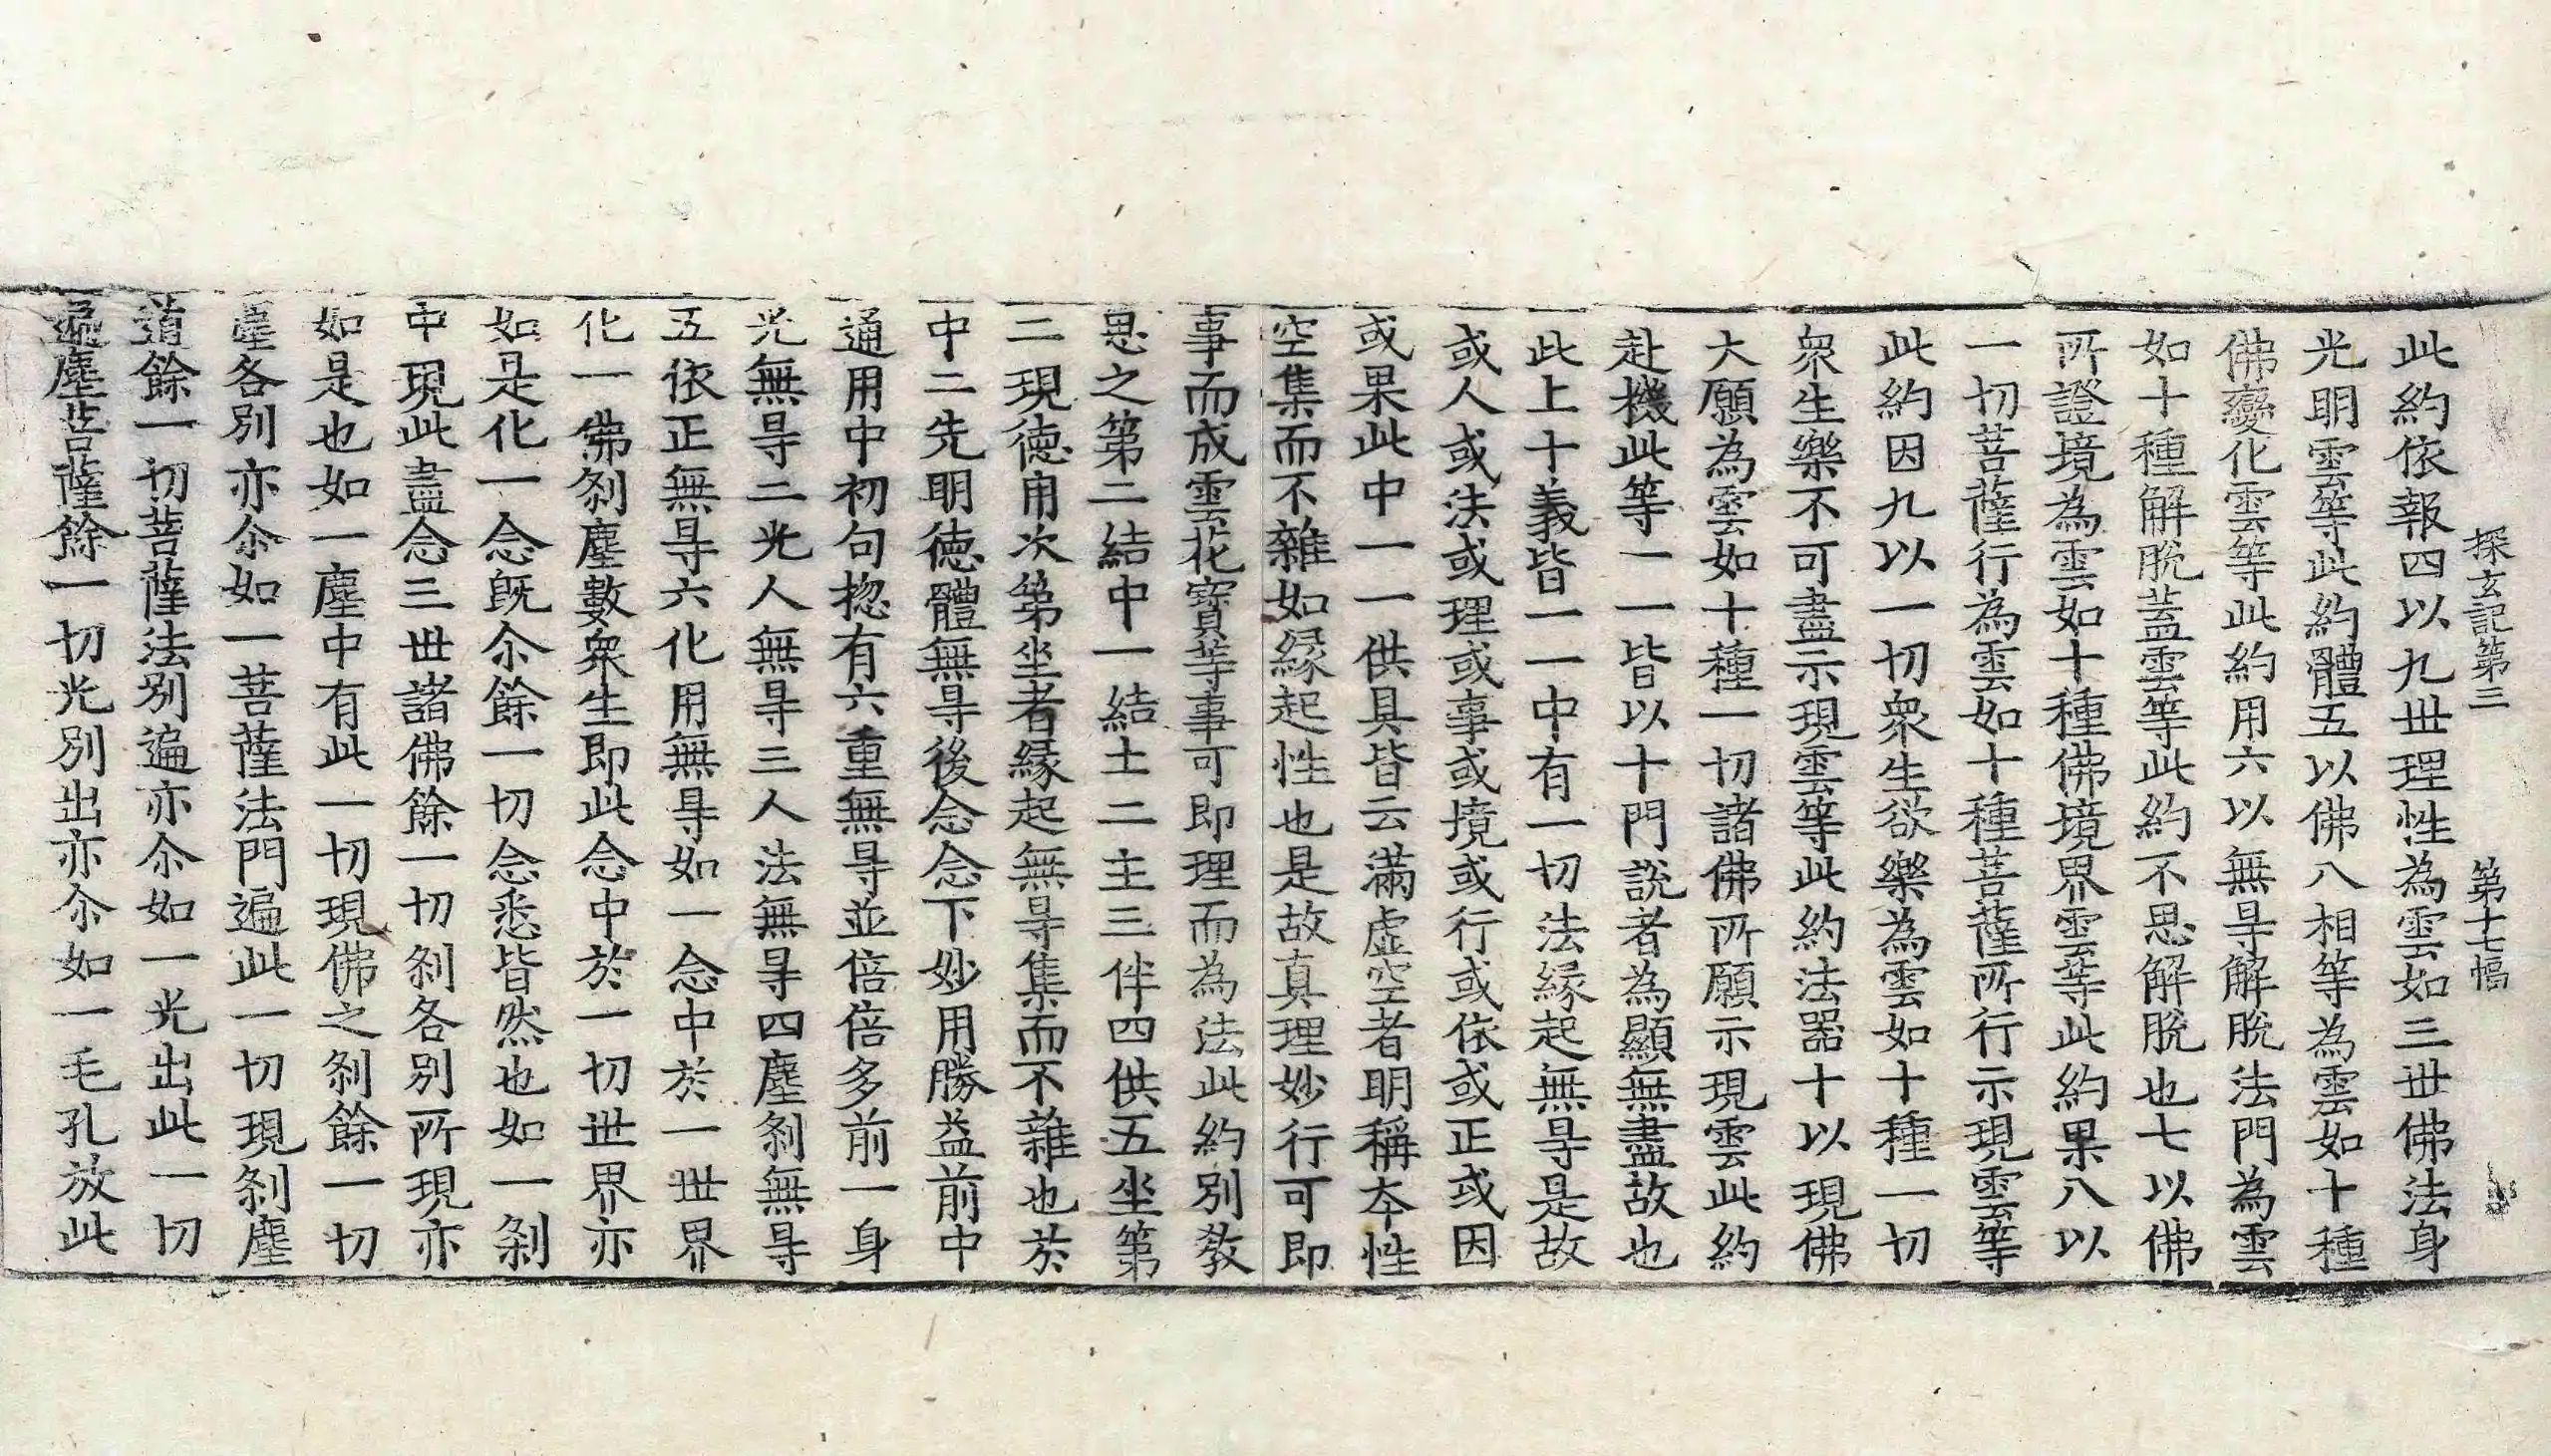 探玄記第三 第十七幅
此約依報四以九世理性為雲如三世佛法身
光明雲等此約體五以佛八相等為雲如十種
佛變化雲等此約用六以無㝵解脫法門為雲
如十種解脫蓋雲等此約不思解脫也七以佛
所證境為雲如十種佛境界雲等此約果八以
一切菩薩行為雲如十種菩薩所行示現雲等
此約因九以一切衆生欲樂為雲如十種一切
衆生樂不可盡示現雲等此約法器十以現佛
大願為雲如十種一切諸佛所願示現雲此約
赴機此等一一皆以十門說者為顯無盡故也
此上十義皆一一中有一切法緣起無㝵是故
或人或法或理或事或境或行或依或正或因
或果此中一一供具皆云滿虛空者明稱夲性
空集而不雜如緣起性也是故真理妙行可即
事而成雲花寶等事可即理而為法此約別教
思之第二結中一結土二主三伴四供五坐第
二現德用次第坐者緣起無㝵集而不雜也於
中二先明德體無㝵後念念下妙用勝益前中
通用中初句揔有六重無㝵並倍倍多前一身
光無㝵二光人無㝵三人法無㝵四塵刹無㝵
五依正無㝵六化用無㝵如一念中於一世界
化一佛刹塵數衆生即此念中於一切世界亦
如是化一念既尒餘一切念悉皆然也如一刹
中現此盡念三世諸佛餘一切刹各別所現亦
如是也如一塵中有此一切現佛之刹餘一切
塵各別亦尒如一菩薩法門遍此一切現刹塵
道餘一切菩薩法別遍亦尒如一光出此一切
遍塵菩薩餘一切光別出亦尒如一毛孔放此